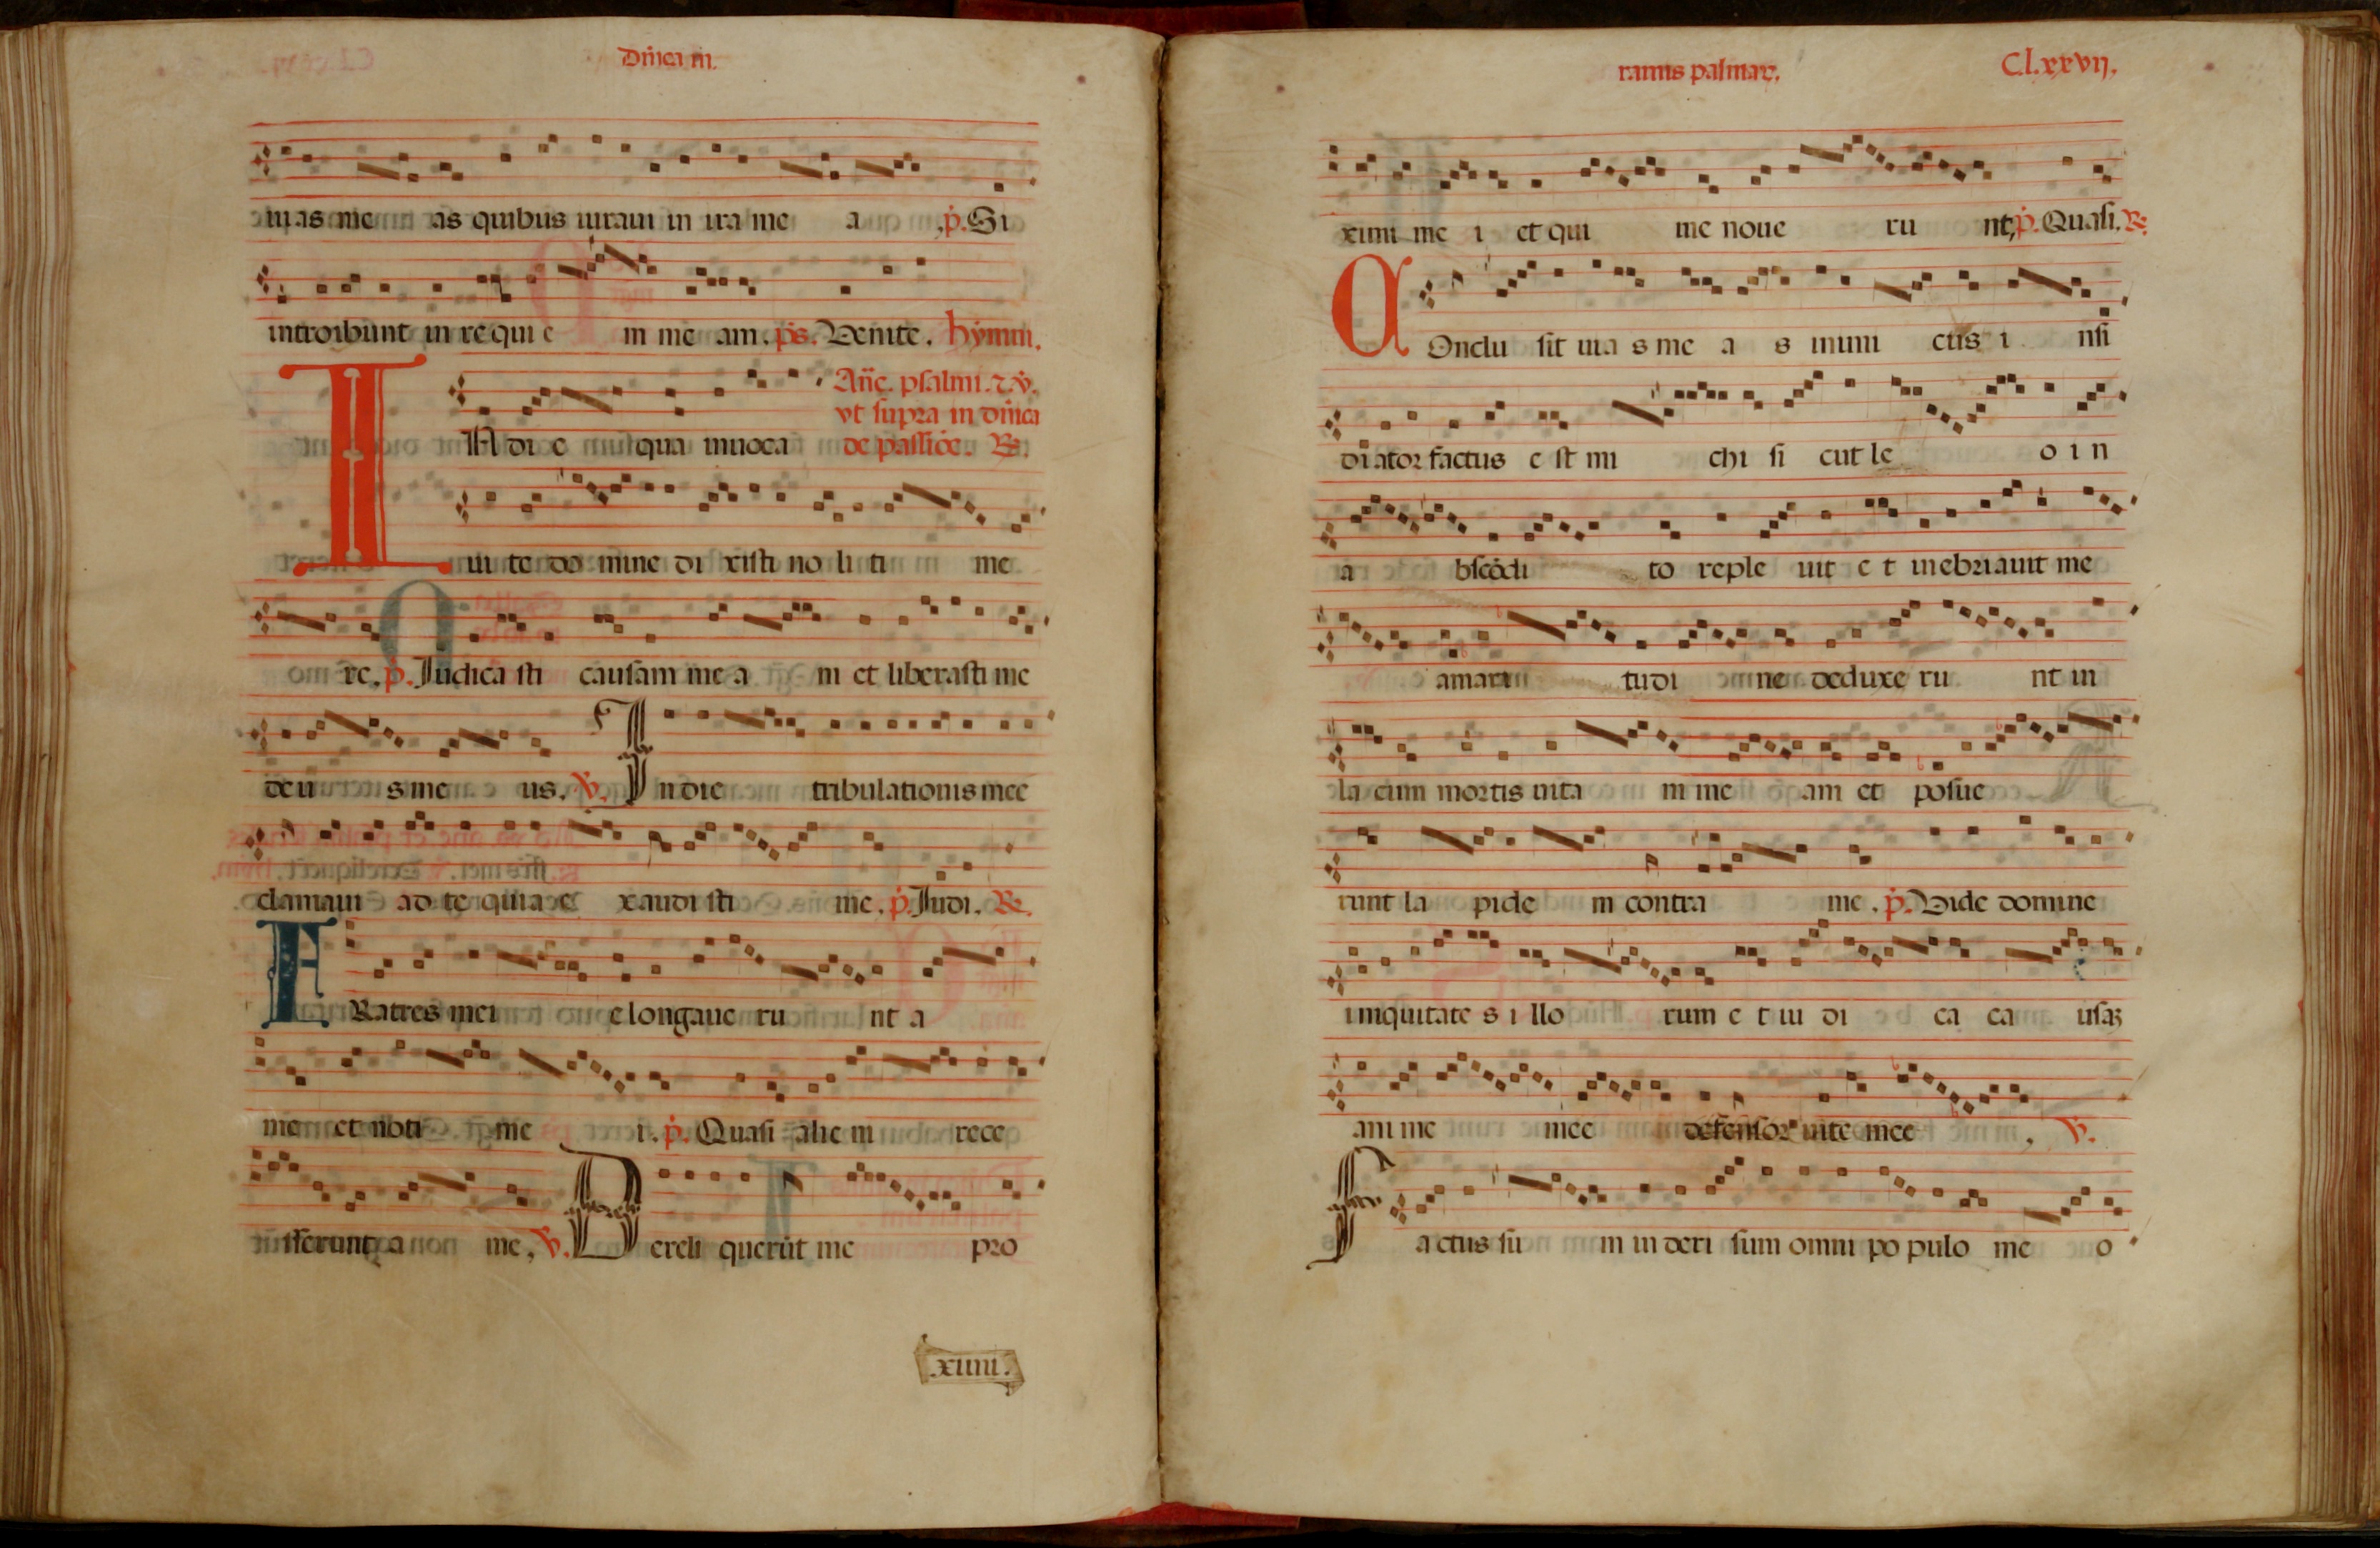 Dn̄ica in.
uias me as quibus iuraui in ira me a .p̄. Si
introibunt in re qui e m me am. p̄s. Venite. hymn.
IN di e qua inuoca
Añe. psalmi. ⁊ ℣.
vt supra in dn̄ica
de passiōe. ℟.
In te do mine di xisti no li ti me
re. p̄. Iudica sti causam me a m et liberasti me
deu s me us. ℣. In die tribulationis mee
clamaui ad te quia e xaudi sti me. p̄. Iudi. ℟.
FRatres mei elongaue ru nt a
me et noti me i. p̄. Quasi alie ni rece
sserunt a me. ℣. Dereli querūt me pro
.xiiii.
ramis palmar̄.
C.lxxvij.
ximi me i et qui me noue ru nt, p̄. Quasi. ℟.
COnclu sit uia s me a s inimi cus i nsi
diator factus e st mi chi si cut le o i n
a bscōdi to reple uit e t inebriauit me
amari tudi ne deduxe ru nt in
la cum mortis uita m me am et posue
runt la pide m contra me. p̄. Vide domine
iniquitate s i llo rum e t iu di ca ca usaꝫ
anime mee defensor uite mee , ℣.
Factus su m in deri sum omni po pulo me o